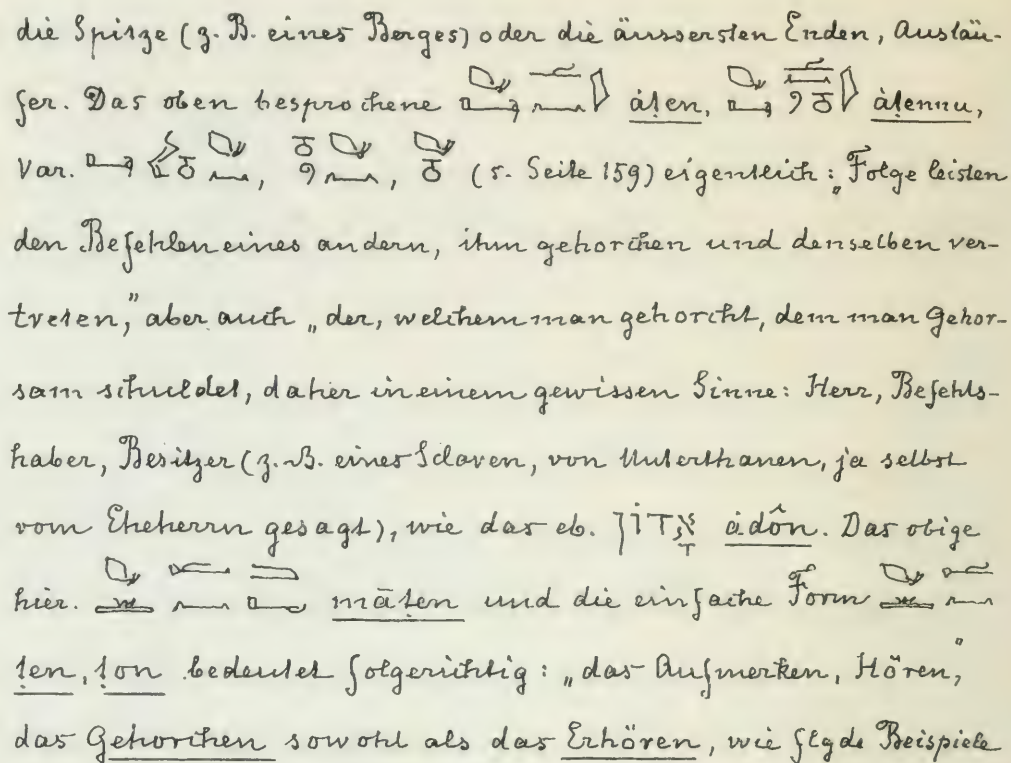 die Spitze (z. B. eines Berges) oder die äussersten Enden, Ausläu-
fer. Das oben besprochene áṭen, áṭennu,
Var. , , (s. Seite 159) eigentlich: „Folge leisten
den Befehlen eines andern, ihm gehorchen und denselben ver-
treten,” aber auch „der, welchem man gehorcht, dem man Gehor-
sam schuldet, daher in einem gewissen Sinne: Herr, Befehls-
haber, Besitzer (z. B. eines Sclaven, von Unterthanen, ja selbst
vom Eheherrn gesagt), wie das eb. אָדוֹן ádôn. Das obige
hier. māṭen und die einfache Form
ṭen, ṭon bedeutet folgerichtig: „das Aufmerken, Hören,”
das Gehorchen sowohl als das Erhören, wie flgde Beispiele